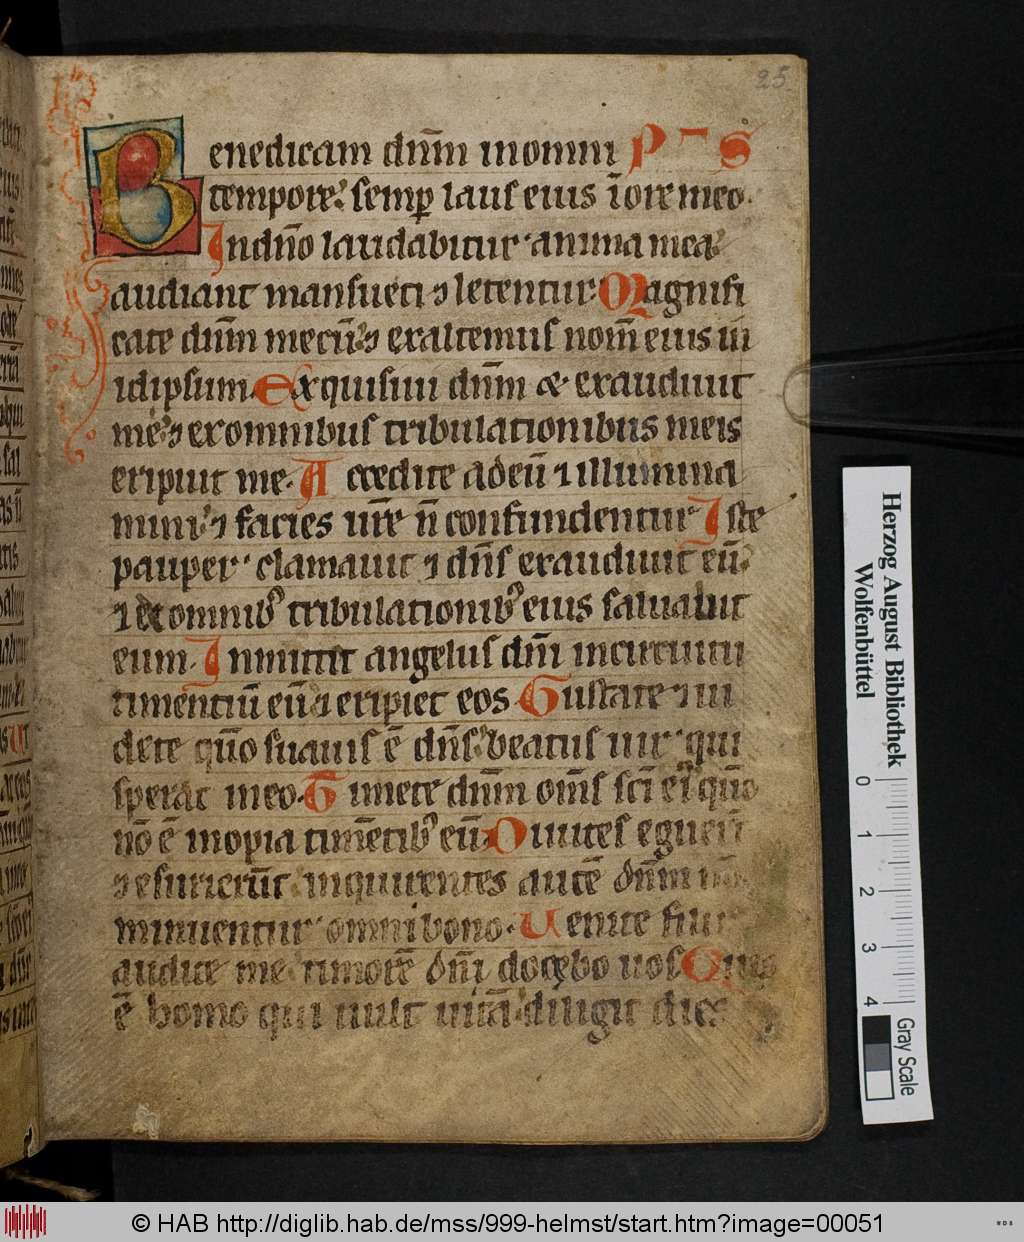 25.
Benedicam dn̄m in omni P̄S
tempore semꝑ laus eius ī ore meo.
In dn̄o laudabitur anima mea
audiant mansueti ⁊ letentur. Magnifi
cate dn̄m mecū ⁊ exaltemus nom̄ eius in
idipsum. Exquisiui dn̄m & exaudiuit
me ⁊ ex omnibus tribulationibus meis
eripiuit me. Accedite ad eū ⁊ illumina
mini ⁊ facies ur̄e n̄ confundentur Iste
pauper clamauit ⁊ dn̄s exaudiuit eū
⁊ omnibꝰ tribulationibꝰ eius saluabit
eum. Inmittit angelus dn̄i in circuitu
timentiū eū ⁊ eripiet eos Gustate ⁊ ui
dete qūo suauis ē dn̄s beatus uir qui
sperat in eo. Timete dn̄m om̄s sc̄i ei qūo
nō ē inopia timētibꝰ eū Diuites eguer̄t
⁊ esurierūt inquirentes autē dn̄m nō
minuentur omni bono. Uenite filii
audite me timorē dn̄i docebo uos Quis
ē homo qui uult uitā diligit dies
Herzog August Bibliothek
Wolfenbüttel
0 1 2 3 4
Gray Scale
© HAB http://diglib.hab.de/mss/999-helmst/start.htm?image=00051